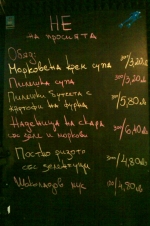 НЕ
на простата
Обяд:
Морковена крем супа 300/3,20лв
Пилешка супа 300/3,20лв
Пилешки бутчета с
картофи на фурна /5,80лв
Наденица на скара
със зеле и моркови /6,40лв
Постно ризото
със зеленчуци /4,80лв
Шоколадов кекс /4,80лв